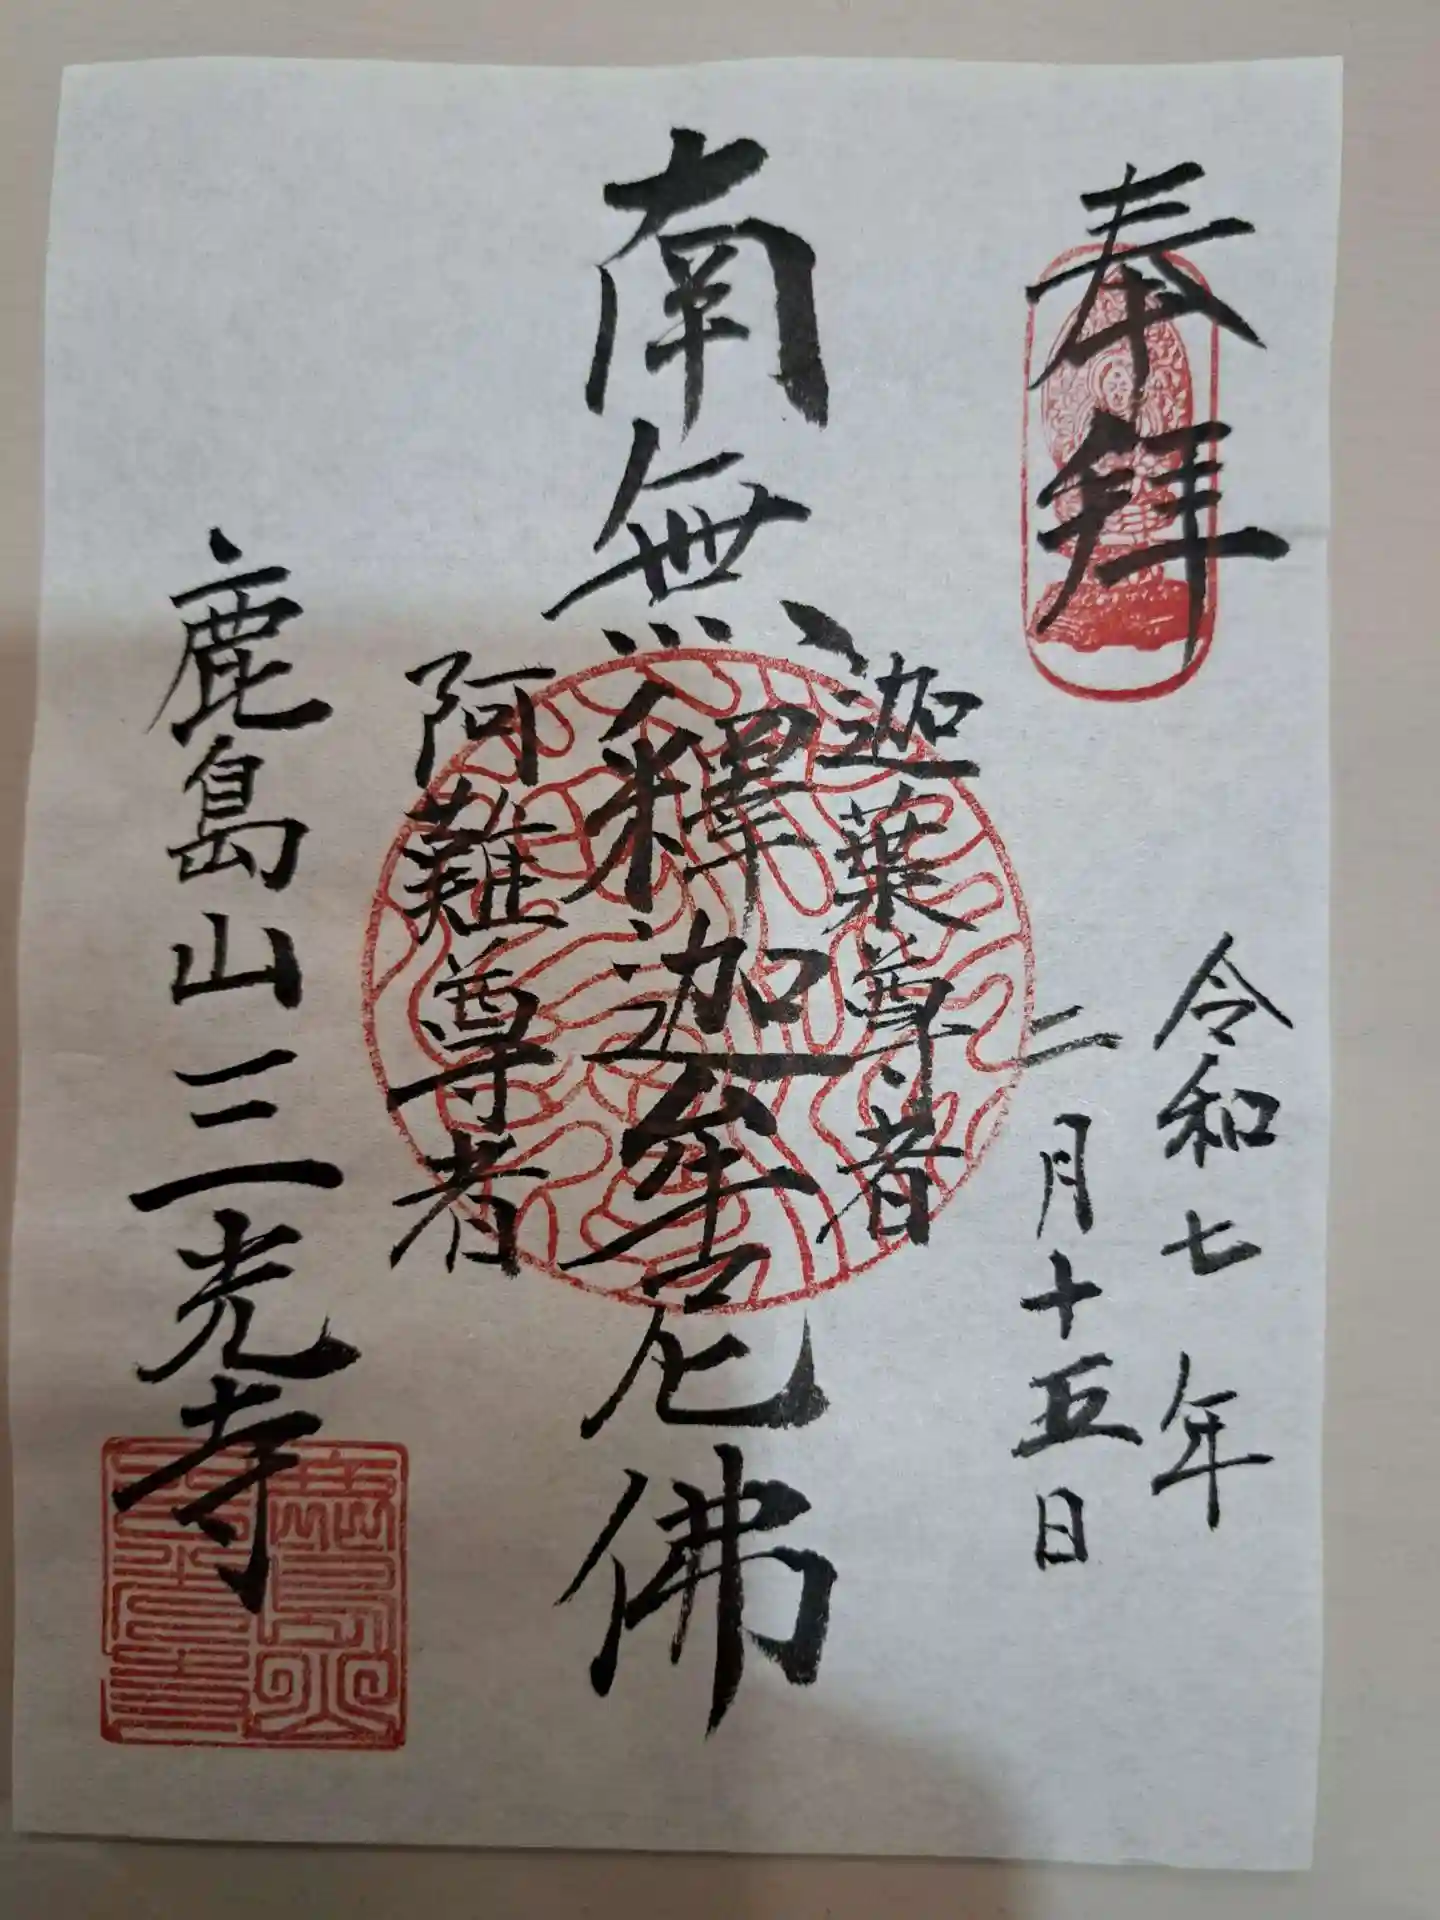 奉拜
令和七年
二月十五日
迦葉尊者
南無釋迦牟尼佛
阿難尊者
鹿島山三光寺